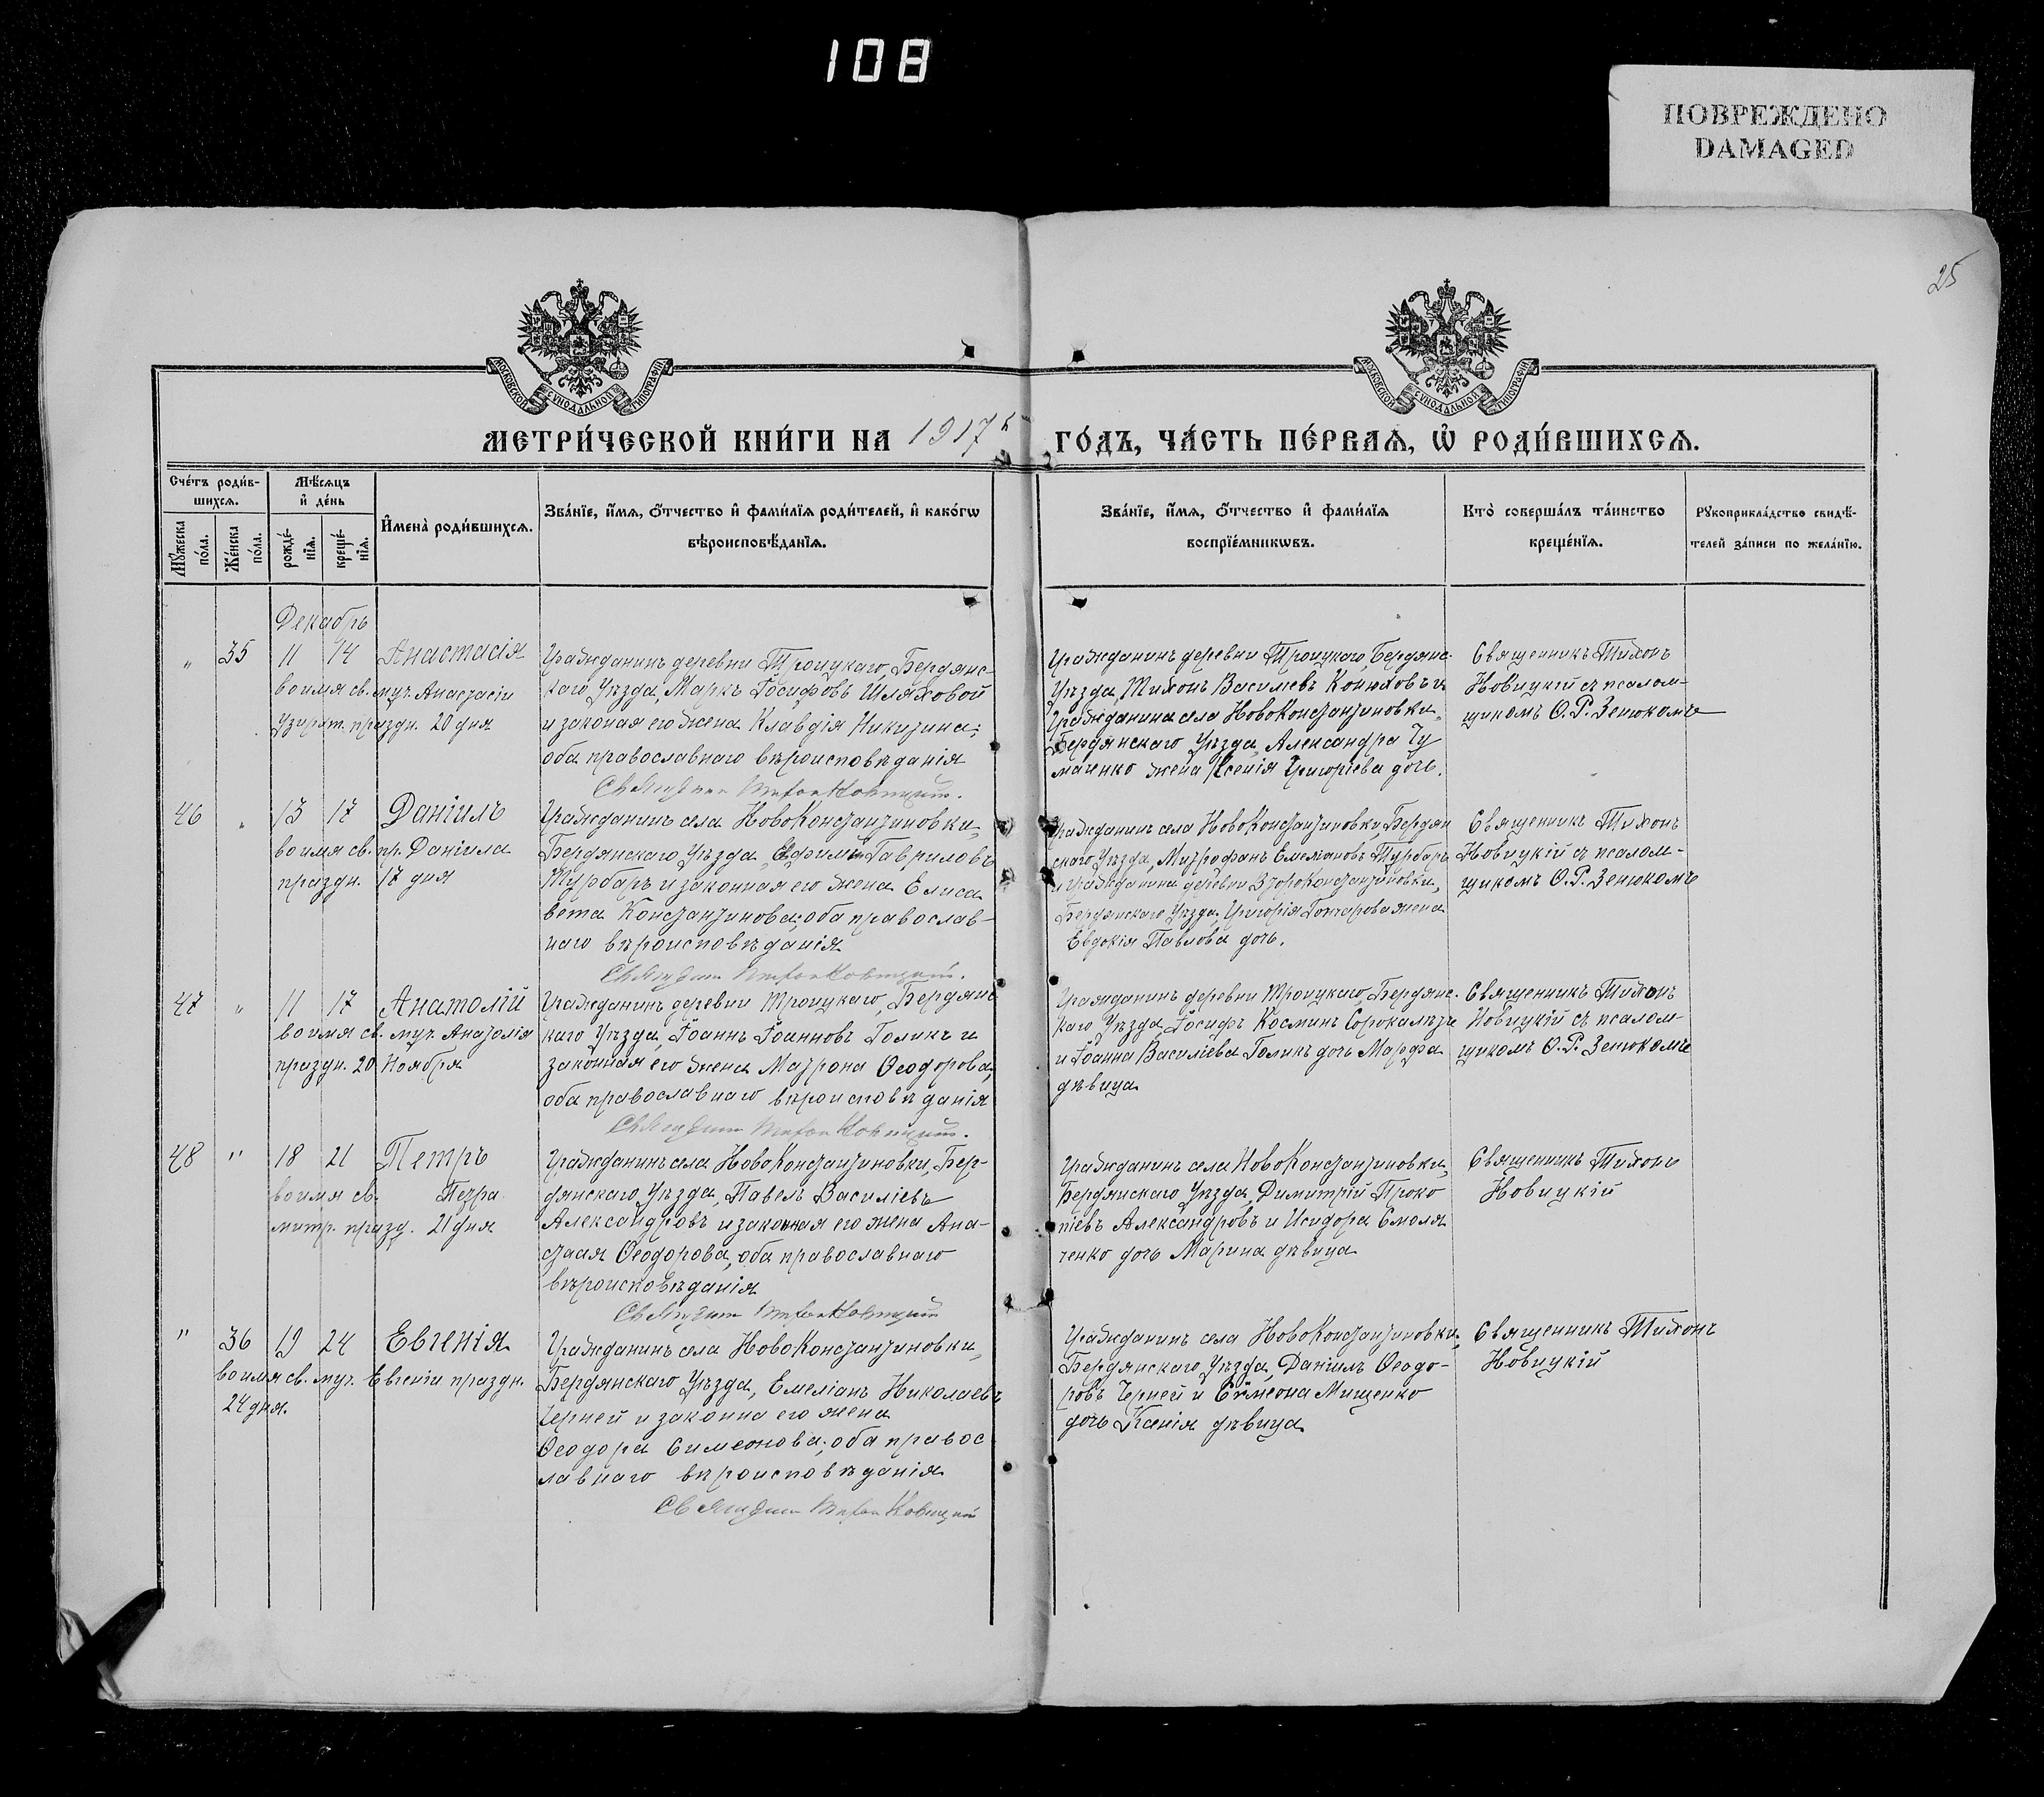 108
ПОВРЕЖДЕНО
DAMAGED
25
МОСКОВСКОЙ СУНОДАЛЬНОЙ ТИПОГРАФІИ
МОСКОВСКОЙ СУНОДАЛЬНОЙ ТИПОГРАФІИ
МЕТРИ́ЧЕСКОЙ КНИ́ГИ НА 1917й ГО́ДЪ, ЧА́СТЬ ПЕ́РВАѦ, Ѡ҆ РОДИ́ВШИХСѦ.
Сче́тъ роди́в-
шихсѧ.
Мѣ́сѧцъ
и҆ де́нь
Мꙋ́жеска по́ла.
Же́нска по́ла.
рожде́-нїѧ.
креще́-нїѧ.
И҆мена̀ роди́вшихсѧ.
Зва́нїе, и҆́мѧ, ѻ҆́тчество и҆ фами́лїѧ роди́телей, и҆ како́гѡ
вѣроисповѣ́данїѧ.
Зва́нїе, и҆́мѧ, ѻ҆́тчество и҆ фами́лїѧ
воспрїе́мникѡвъ.
Кто̀ соверша́лъ та́инство
креще́нїѧ.
Рꙋкоприкла́дство свидѣ́-
телей за́писи по жела́нїю.
Декабрь
" 35 11 14 Анастасія
во имя св. муч. Анастасіи
Узирѣт. праздн. 20 дня
Гражданинъ деревни Троицкаго, Бердянс-
каго Уѣзда, Маркъ Іосифовъ Шляховой
и законая его жена Клавдія Никитина;
оба православнаго вѣроисповѣданія
Священник Тихон Новицкий.
Гражданинъ деревни Троицкаго, Бердянс-
Уѣзда, Тихонъ Василіевъ Конюховъ и
Гражданина села НовоКонстантиновки,
Бердянскаго Уѣзда, Александра Чу
маченко жена Ксенія Григоріева дочь.
Священникъ Тихонъ
Новицкій съ псалом-
щикомъ Ѳ. Р. Зенюкомъ
46 " 13 17 Даніилъ
во имя св. пр. Даніила
праздн. 17 дня
Гражданинъ села НовоКонстантиновки,
Бердянскаго Уѣзда, Ефимій Гавриловъ
Турбаръ и законная его жена Елиса
вета Константинова; оба православ-
наго вѣроисповѣданія
Священник Тихон Новицкий.
Гражданинъ села НовоКонстантиновки, Бердян
скаго Уѣзда, Митрофанъ Емеліановъ Турбаръ
и гражданина деревни ВтороКонстантиновки,
Бердянскаго Уѣзда, Григорія Гончарова жена
Евдокія Павлова дочь.
Священникъ Тихонъ
Новицкій съ псалом-
щикомъ Ѳ. Р. Зенюкомъ
47 " 11 17 Анатолій
во имя св. муч. Анатолія
праздн. 20 Ноября
Гражданинъ деревни Троицкаго, Бердянс
каго Уѣзда, Іоаннъ Іоанновъ Голикъ и
законная его жена Матрона Ѳеодорова,
оба православнаго вѣроисповѣданія
Священник Тихон Новицкий.
Гражданинъ деревни Троицкаго, Бердянс-
каго Уѣзда, Іосифъ Косминъ Сорокалѣтъ
и Іоанна Василіева Голикъ дочь Марфа
дѣвица
Священникъ Тихонъ
Новицкій съ псалом-
щикомъ Ѳ. Р. Зенюкомъ
48 " 18 21 Петръ
во имя св. Петра
митр. празд. 21 дня
Гражданинъ села НовоКонстантиновки, Бер-
дянскаго Уѣзда, Павелъ Василіевъ
Александровъ и законная его жена Ана-
стасія Ѳеодорова, оба православнаго
вѣроисповѣданія
Священник Тихон Новицкий
Гражданинъ села НовоКонстантиновки,
Бердянскаго Уѣзда, Димитрій Проко
піевъ Александровъ и Исидора Смоля
ченко дочь Марина дѣвица
Священникъ Тихонъ
Новицкій
" 36 19 24 Евгенія
во имя св. муч. Евгеніи праздн.
24 дня.
Гражданинъ села НовоКонстантиновки,
Бердянскаго Уѣзда, Емеліанъ Николаевъ
Черней и законна его жена
Ѳеодора Симеонова; оба правос
лавнаго вѣроисповѣданія
Священник Тихон Новицкий
Гражданинъ села НовоКонстантиновки,
Бердянскаго Уѣзда, Даніилъ Ѳеодо-
ровъ Черней и Симеона Мищенко
дочь Ксенія дѣвица
Священникъ Тихонъ
Новицкій